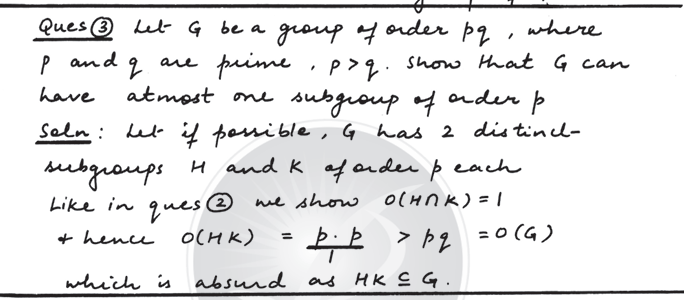 Ques ③ Let G be a group of order pq, where
p and q are prime, p>q. Show that G can
have atmost one subgroup of order p
Soln: Let if possible, G has 2 distinct
subgroups H and K of order p each
Like in ques ② we show O(H∩K) = 1
& hence O(HK) = p.p/1 > pq = O(G)
which is absurd as HK ⊆ G.